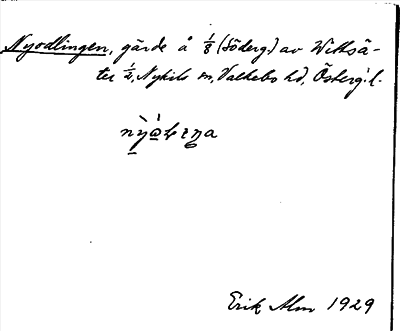 Nyodlingen, gärde å 1/8 (Söderg.) av Vittsä-
ter 1/4, Nykils sn, Valkebo hd, Österg. l.
Erik Alm 1929